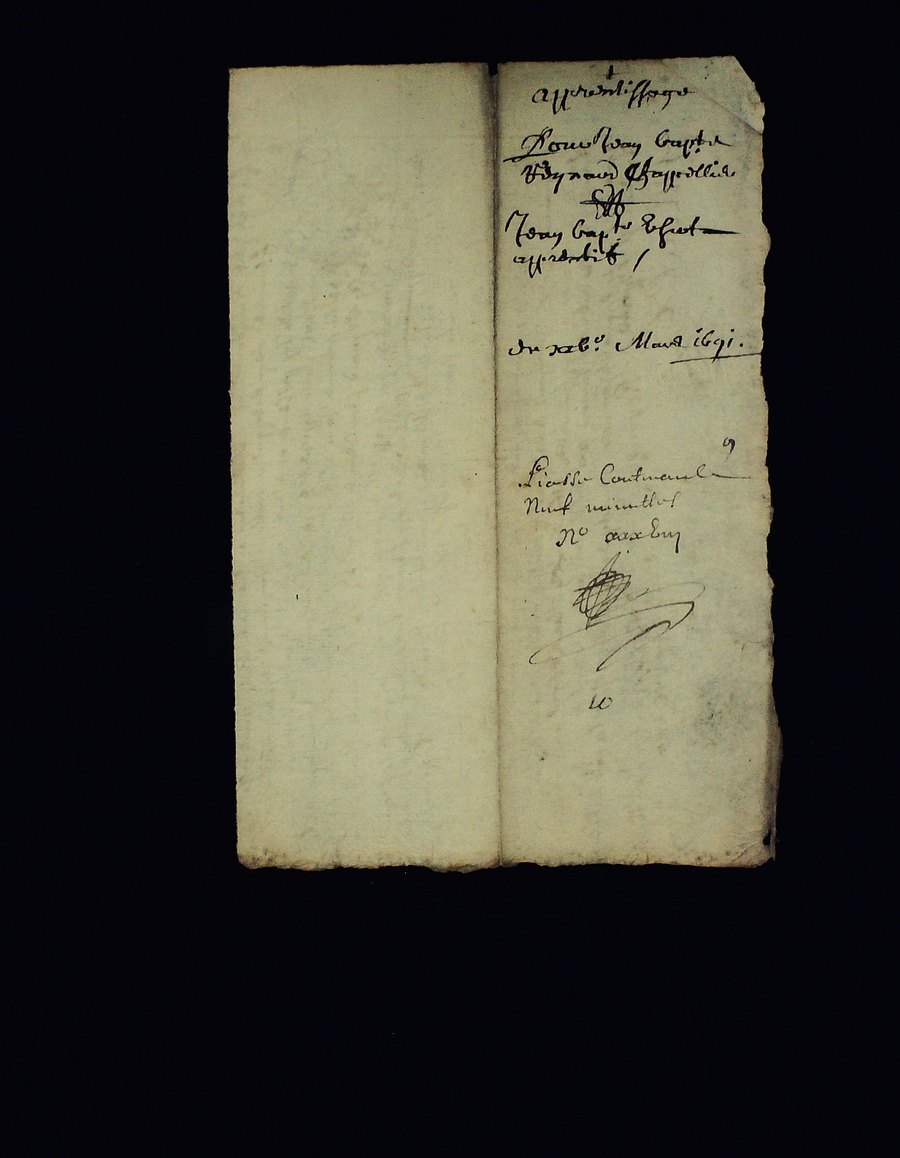 apprentissage
Pour Jean bapte
Reynaud Chappellier
Et
Jean bapte
apprentif /
du xxbe. Mars 1691.
9
Liasse Contenant
Neuf minuttes
No xxxbiij
10